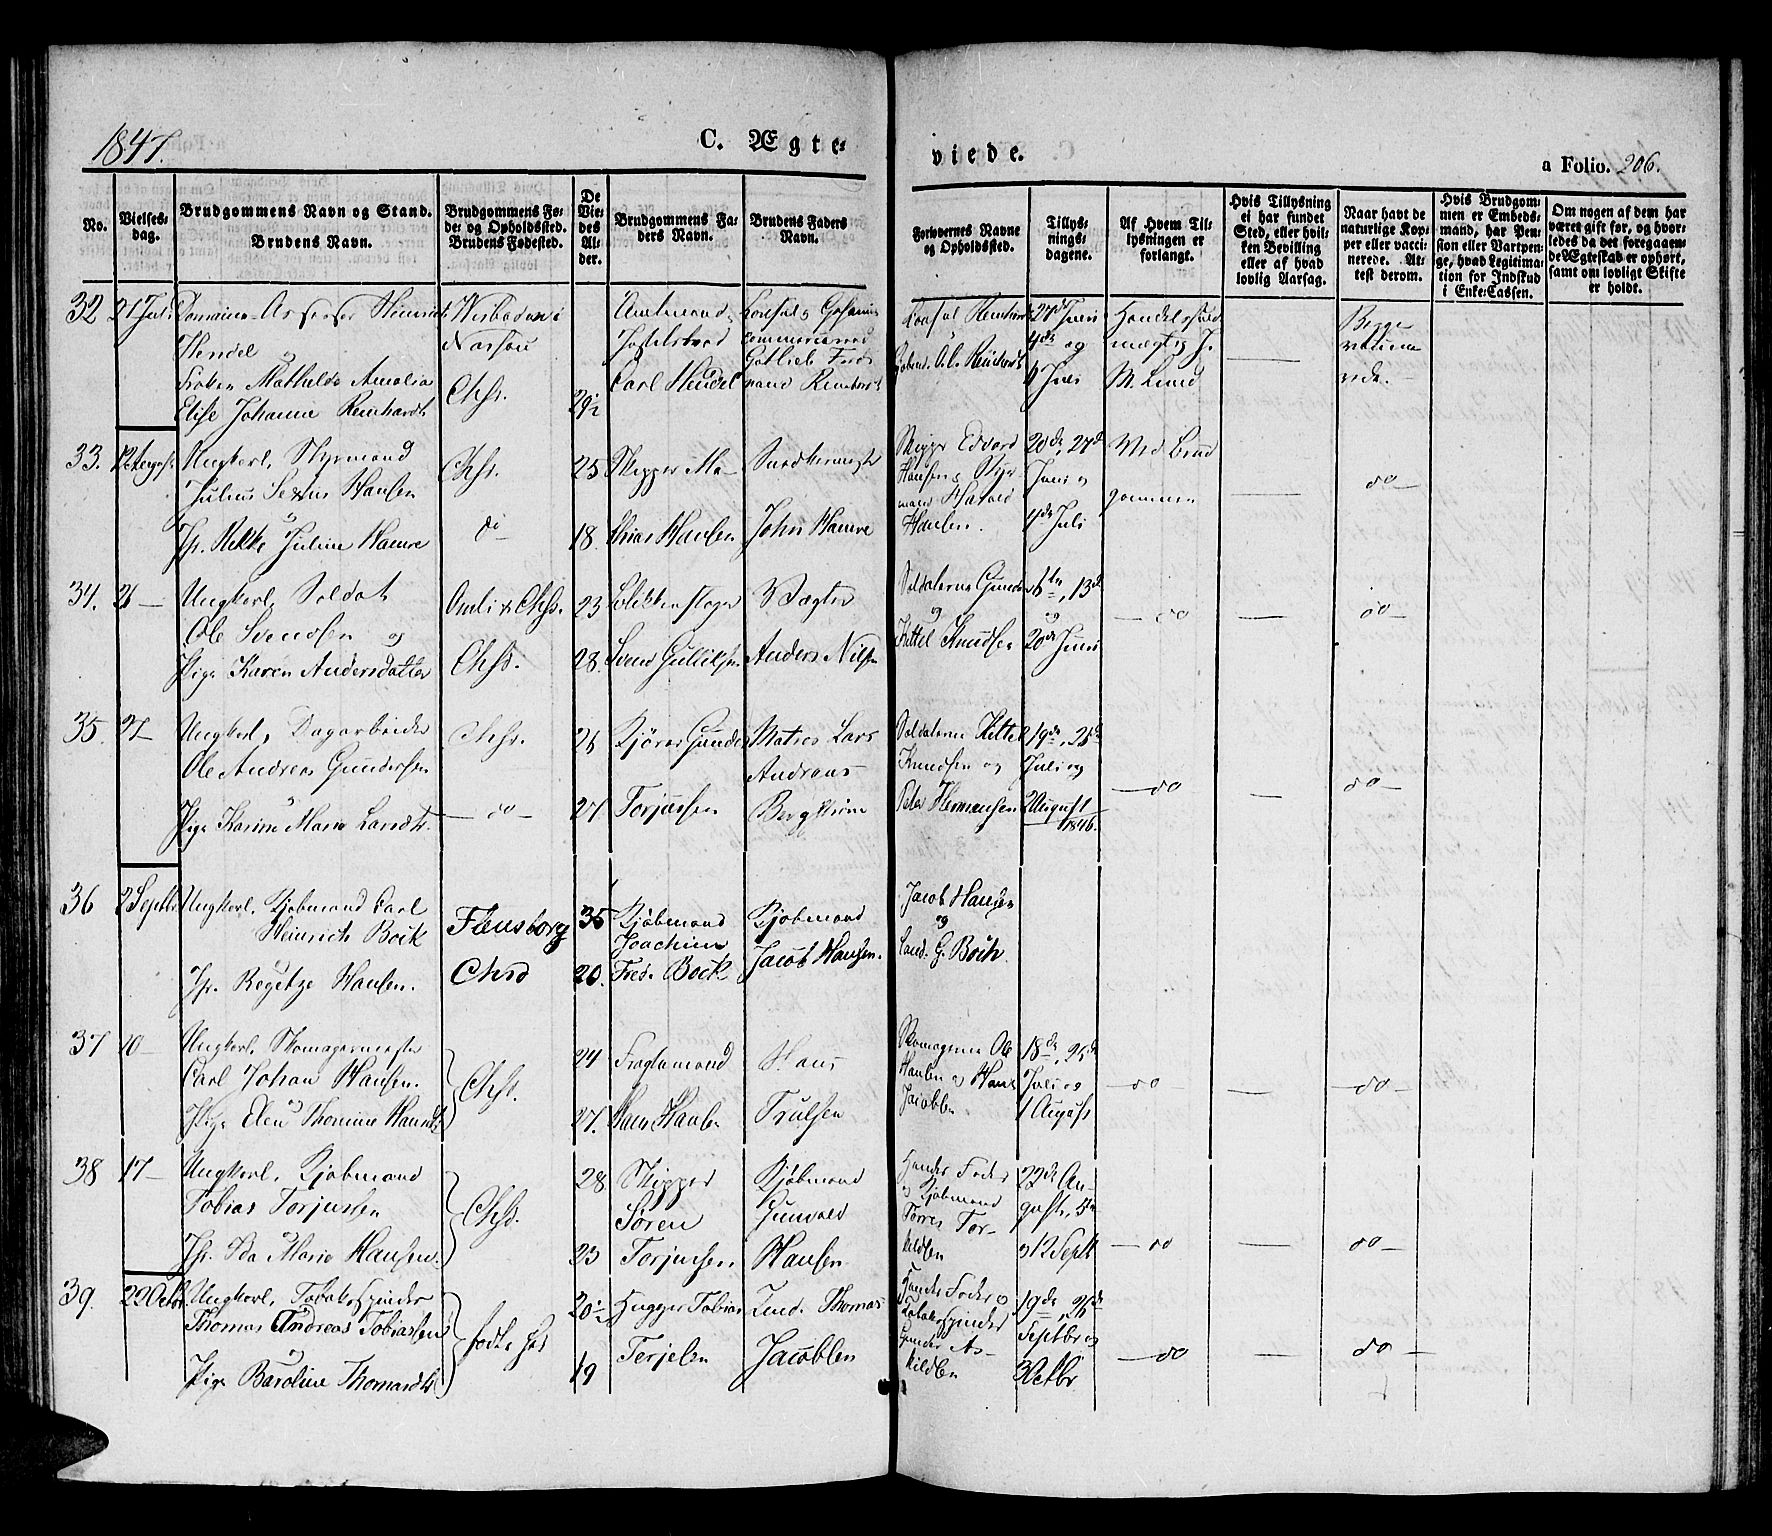 1847.
C. Ægte-
viede.
a Folio. 206.
No.
Vielses-
dag.
Brudgommens Navn og Stand.
Brudens Navn.
Brudgommens Fø-
de- og Opholdssted.
Brudens Fødested.
De
Vie-
des
Al-
der.
Brudgommens Fa-
ders Navn.
Brudens Faders
Navn.
Forlovernes Navne
og Opholdssted.
Tillys-
nings-
dagene.
Af Hvem Til-
lysningen er
forlangt.
Hvis Tillysning
ei har fundet
Sted, eller hvil-
ken Bevilling
eller af hvad
lovlig Aarsag.
Naar havt de
naturlige Kop-
per eller vacci-
nerede. At-
test derom.
Hvis Brudgom-
men er Embeds-
mand, har Pen-
sion eller Vartpen-
ge, hvad Legitima-
tion for Indskud
i Enke-Cassen.
Om nogen af dem har
været gift før, og hvor-
ledes da det foregaaen-
de Ægteskab er ophørt,
samt om lovligt Skifte
er holdt.
32 21 Juli
Hendel
Frøken Mathilde Amalia
Elise Johanne Reinhardt
Chs.
29½
Carl Hendel
Consul
4de og
M. Lund
33. 12 August
Ungkarl, Styrmand
Julius Hansen
og
Jfr. Rikke Juline Hamre
Chs.
do
25
18.
Skipper Ma-
thias Hansen
Snedkermester
John Hamre
Skipper Edvard
Hansen & Styr-
mand Harald
Hansen.
20de, 27de
Juni og
4de Juli
Ved Brud
gommen
—
do
34. 26 —
Ungkarl, Soldat
Ole Svendsen og
Pige Karen Andersdatter
Omli & Chs.
Chs.
23
28.
Svend Gulliksen
Vægter
Anders Nilsen
Soldaterne Gunder
og
Kittel Knudsen
6te, 13de
og
20de Juni
— do
—
do —
35. 27
Ungkarl, Dagarbeider
Ole Andreas Gundersen
og
Pige Karine Marie Larsdtr.
Chs.
— do —
26
27
Kjører Gunder
Torjussen
Matros Lars
Andreas
Bergstrøm
Soldaterne Kittel
Knudsen og
Peter Hermansen
19de, 26de
Juli og
2 August
1846.
— do
—
do —
36 2 Septbr.
Ungkarl, Kjøbmand Carl
Heinrich Bock
Jfr. Regitze Hansen.
Flensborg
Chsd
35
20.
Kjøbmand
Joachim
Fred. Bock
Kjøbmand
Jacob Hansen.
Jacob Hansen
og
G. Boch
37 10 —
Ungkarl, Skomagermester
Carl Johan Hansen.
og
Pige Elen Thomine Hansdtr
Chs.
24
27.
Fragtemand
Hans Hansen
Hans
Trulsen
Skomagerne Ole
Hansen og Hans
Jacobsen
18de, 25de
Juli og
1 August
— do
—
— do —
38 17 —
Ungkarl, Kjøbmand
Tobias Torjussen
og
Jfr. Ida Marie Hansen.
Chs.
28
23
Skipper
Søren
Torjussen
Kjøbmand
Gunvald
Hansen
Hendes Fader
og Kjøbmand
Torres Tor-
kildsen
22de Au-
gust, 5te
& 12 Septb
— do
—
do —
39. 22 Octbr.
Ungkarl, Tobakspinder
Thomas Andreas Tobiassen
og
Pige Baroline Thomasdtr
fødte her
20½
19
Tobias
Terjesen
Thomas
Jacobsen
Hendes Fader og
Tobakspinder
Gunder As-
kildsen
19de, 26de
Septbr og
3 Octbr
— do
—
do —